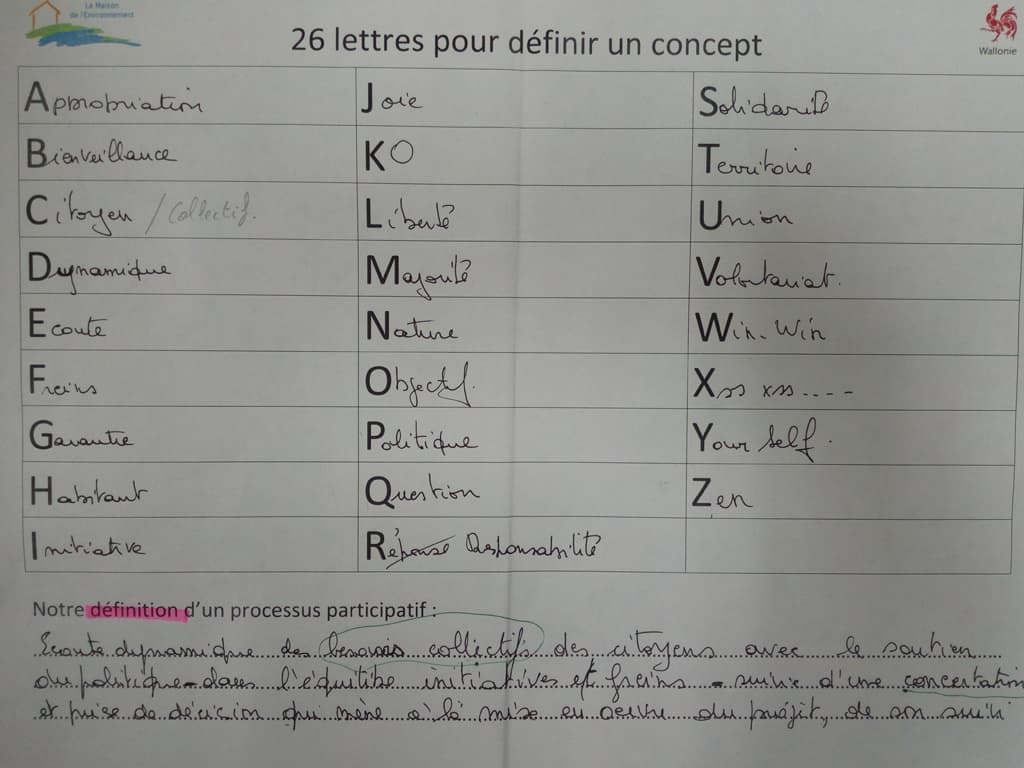 La Maison
de l'Environnement
26 lettres pour définir un concept
Wallonie
Appropriation
Joie
Solidarité
Bienveillance
KO
Territoire
Citoyen / Collectif.
Liberté
Union
Dynamique
Majorité
Volontariat.
Ecoute
Nature
Win-Win
Freins
Objectif.
Xss xss ----
Garantie
Politique
Your self.
Habitant
Question
Zen
Initiative
Réponse Responsabilité
Notre définition d'un processus participatif :
Ecoute dynamique des besoins collectifs des citoyens avec le soutien
du politique - dans l'équilibre initiatives et freins - suivie d'une concertation
et prise de décision qui mène à la mise en oeuvre du projet, de son suivi